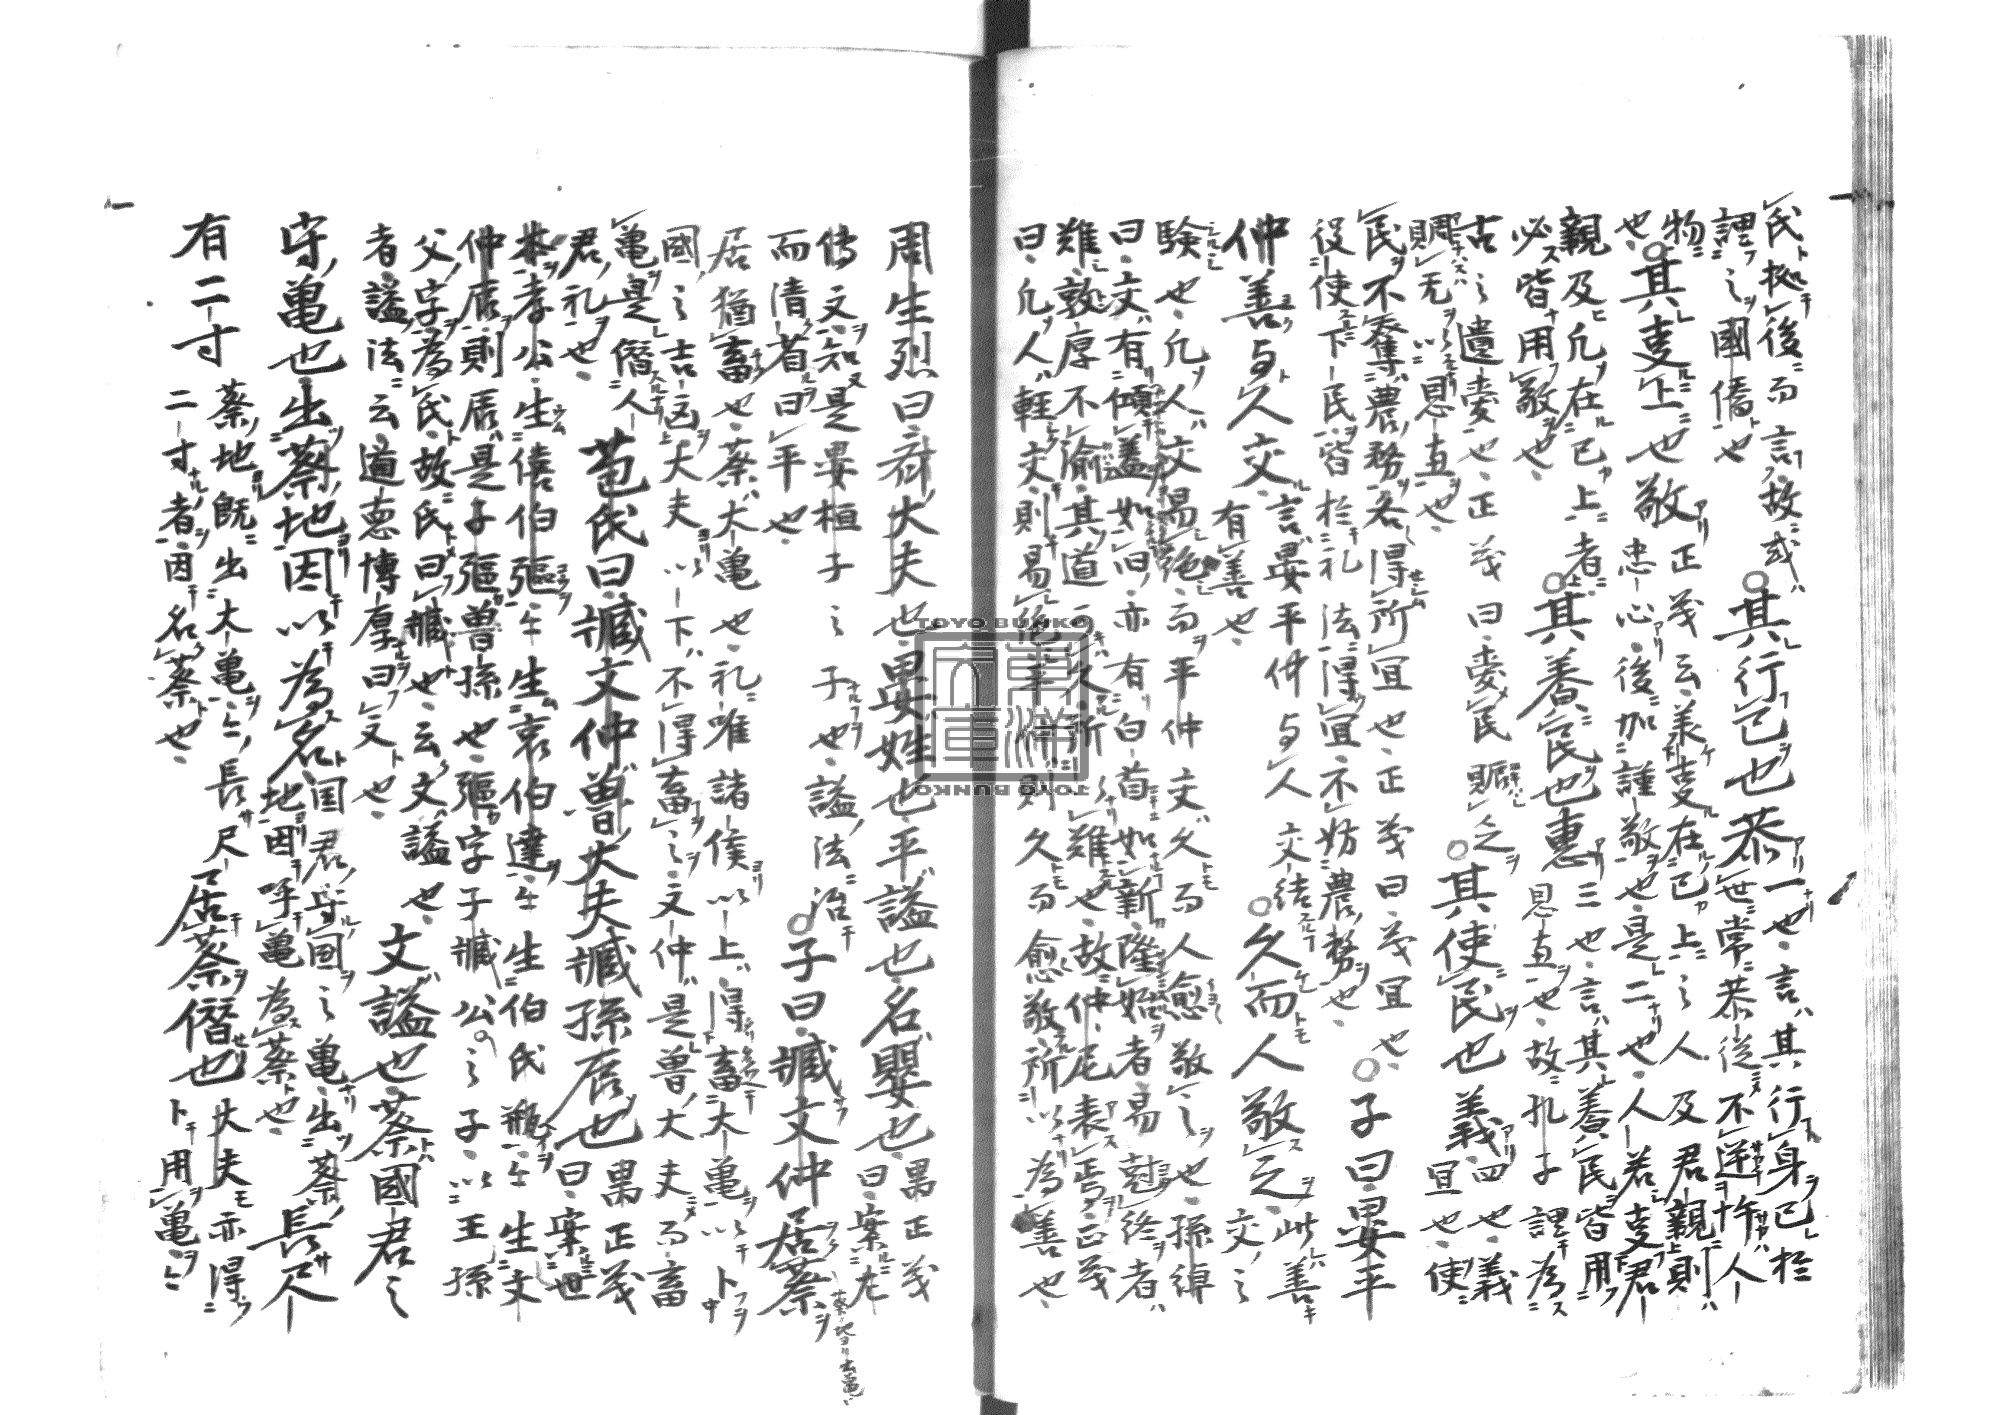 民於後而言故或
謂之國僑也 其行己也恭 一也言其行身己於世常恭從不逆忤人
物也 其事上也敬 正義云美事在己上之人及君親則忠心後加謹敬也是二也人若事君
親及凡在己上者必皆用敬也 其養民也惠 三也言其養民皆用恩惠也故孔子謂為
古之遺愛也正義曰愛民賜之恩惠也 其使民也義 四也義宜也使
民不奪農務各得所宜也正義曰義宜也
役使下民皆於礼法得宜不妨農務也 子曰晏平
仲善与人交 言晏平仲与人交結有善也 久而人敬之 此善交之
験也凡人交易絶而平仲交久而人愈敬之也孫綽
曰交有傾蓋如旧亦有白首如新隆始者易克終者
難敦厚不渝其道可久所以難也故仲尼表焉正義
曰凡人軽交則易絶平仲則久而愈敬所以為善也
周生烈曰齊大夫也晏姓也平謚也名嬰也 禺正義曰案左
傳文知是晏桓子之子也謚法治
而清省曰平也 子曰臧文仲居蔡
居猶畜也蔡大亀也礼唯諸侯以上得畜大亀以卜
國之吉凶大夫以下不得畜之文仲是魯大夫而畜
亀是僭人君礼也 苞氏曰臧文仲魯大夫臧孫辰也 禺正義曰案世
本孝公生僖伯彄々生哀伯達々生伯氏瓶々生文
仲辰則辰是子彄曽孫也彄字子臧公之子以王孫
父字為氏故氏曰臧也云文謚也
者謚法云道悳博厚曰文也 文謚也蔡國君之
守亀也出蔡地因以為名 国君守国之亀出蔡地因呼亀為蔡也 長尺
有二寸 蔡地既出大亀々長尺二寸者因名蔡也 居蔡僭也 大夫亦得卜用亀々